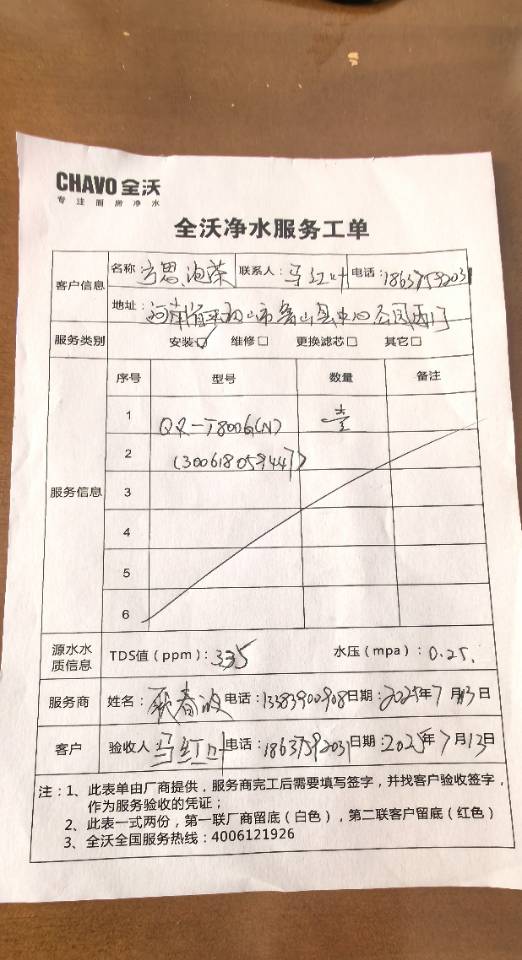 CHAVO 全沃
专注厨房净水
全沃净水服务工单
客户信息 名称 联系人：马红叶 电话：
地址：河南省平顶山市鲁山县
服务类别 安装☑ 维修□ 更换滤芯□ 其它□
服务信息 序号 型号 数量 备注
1 QR-T8006(N) 壹
2 (300618059447)
3
4
5
6
源水水质信息 TDS值（ppm）：335 水压（mpa）：0.25.
服务商 姓名： 电话：13383900908 日期：2025年7月13日
客户 验收人 马红叶 电话：18637592031 日期：2025年7月13日
注：1、此表单由厂商提供，服务商完工后需要填写签字，并找客户验收签字，
作为服务验收的凭证；
2、此表一式两份，第一联厂商留底（白色），第二联客户留底（红色）
3、全沃全国服务热线：4006121926